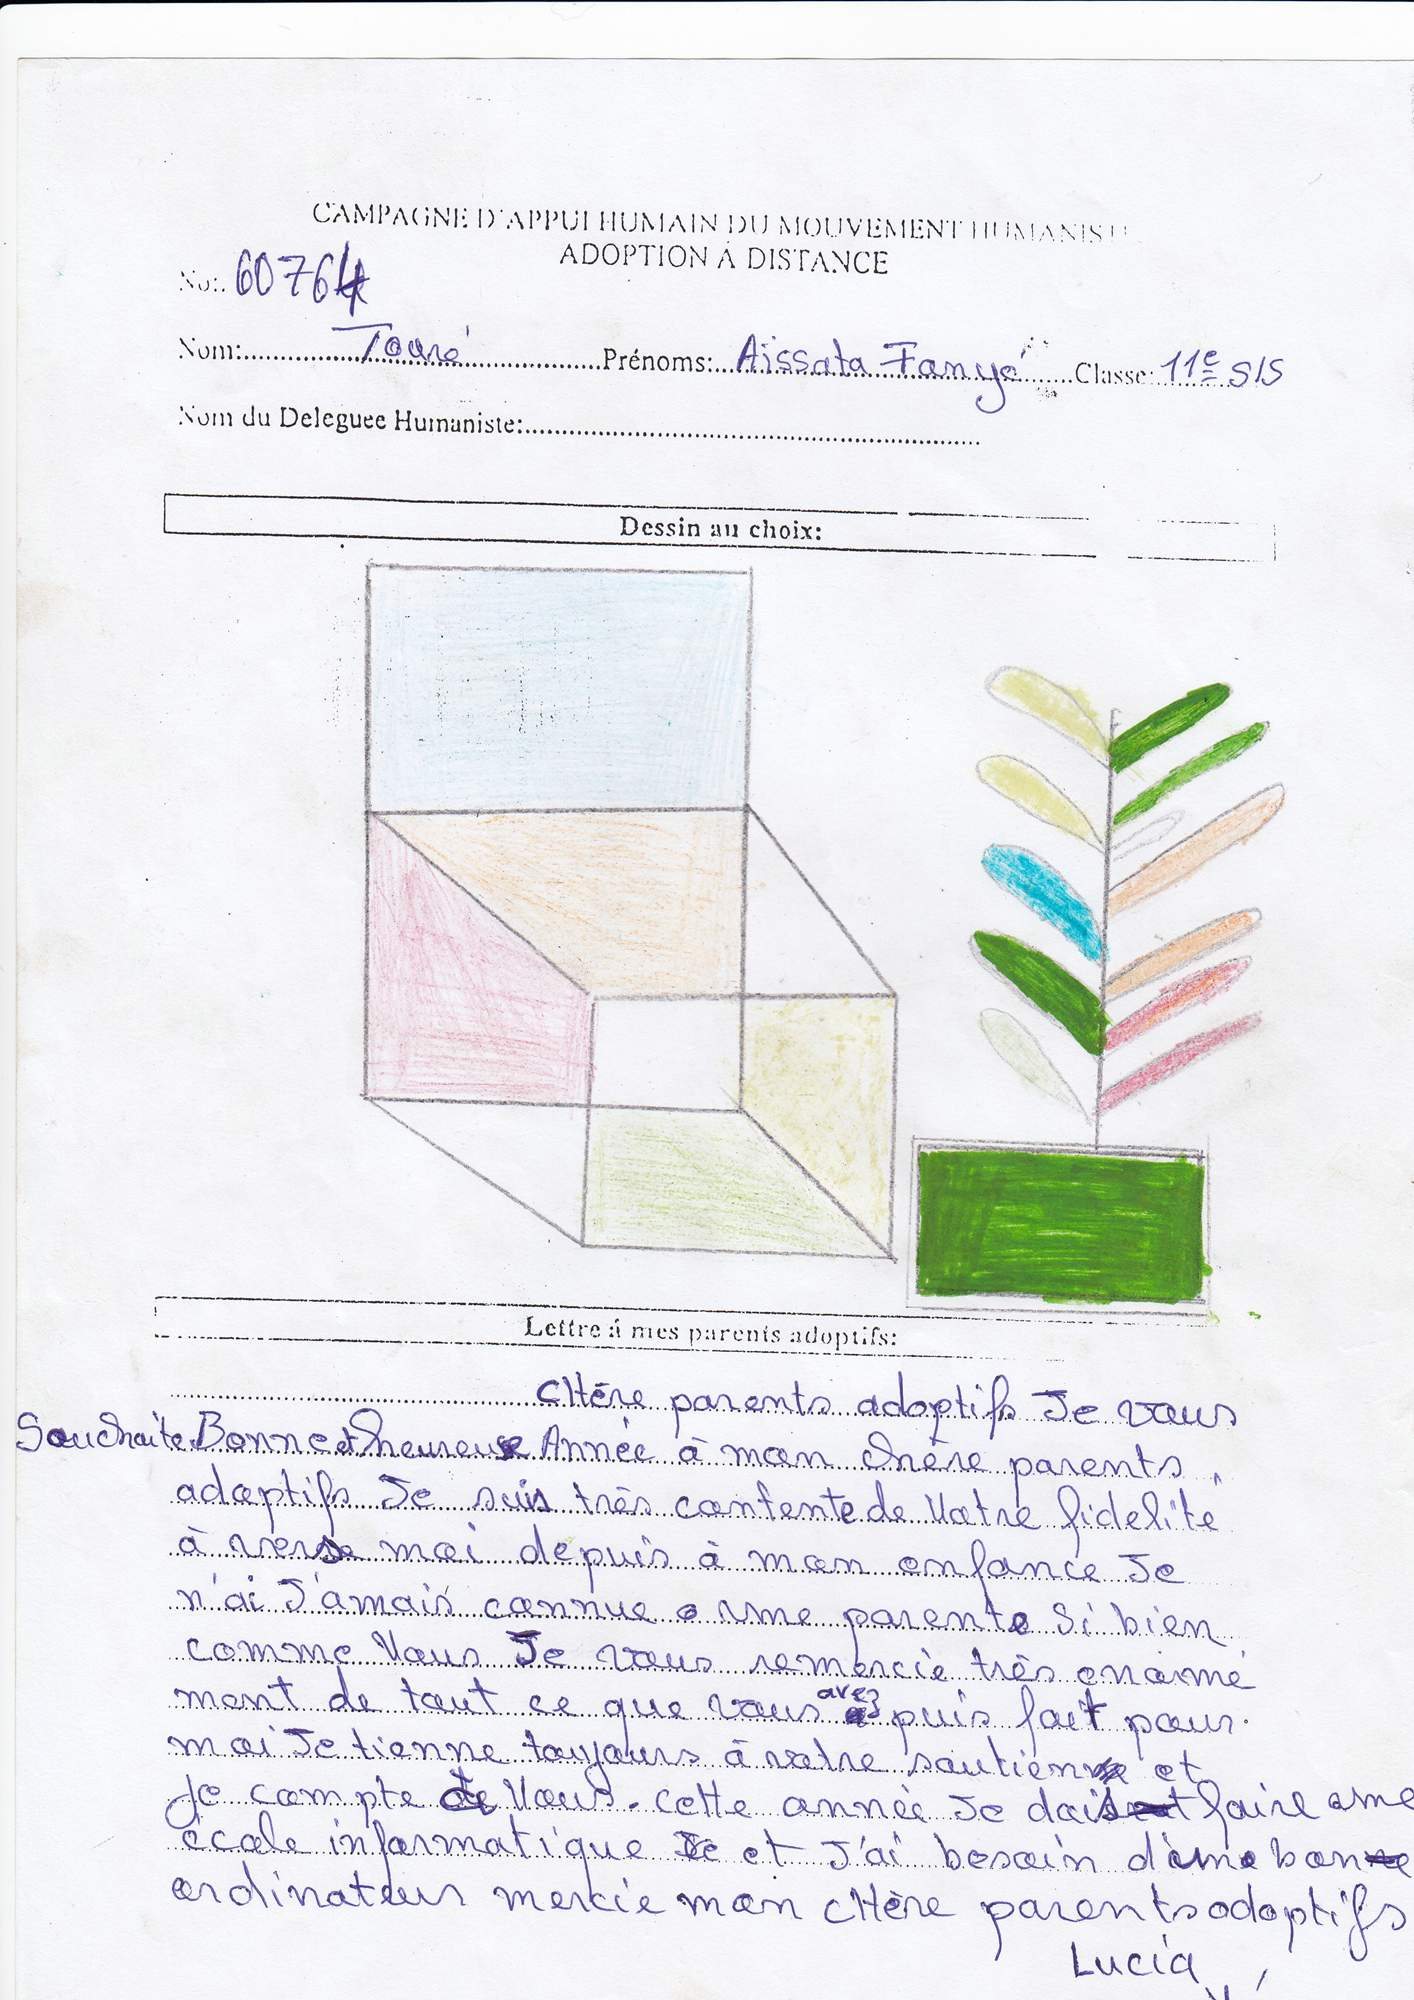 CAMPAGNE D'APPUI HUMAIN DU MOUVEMENT HUMANISTE
ADOPTION Á DISTANCE
No: 60764
Nom: Touré Prénoms: Aïssata Fanyé Classe: 11e SIS
Nom du Deleguee Humaniste:
Dessin au choix:
Lettre á mes parents adoptifs:
CHère parents adoptifs Je vous
Souchaite Bonne et heureuse Année à mon chère parents
adoptifs Je suis très contente de Votre fidelité
à verse moi depuis à mon enfance Je
n'ai J'amais connue une parente si bien
comme Vous Je vous remercie très enormé
ment de tout ce que vous avez puis fait pour
moi Je tienne toujours à votre soutien et
Je compte de Vous. cette année Je dois faire une
école informatique et J'ai besoin d'une bon
ordinateur mercie mon cHère parents adoptifs
Lucia